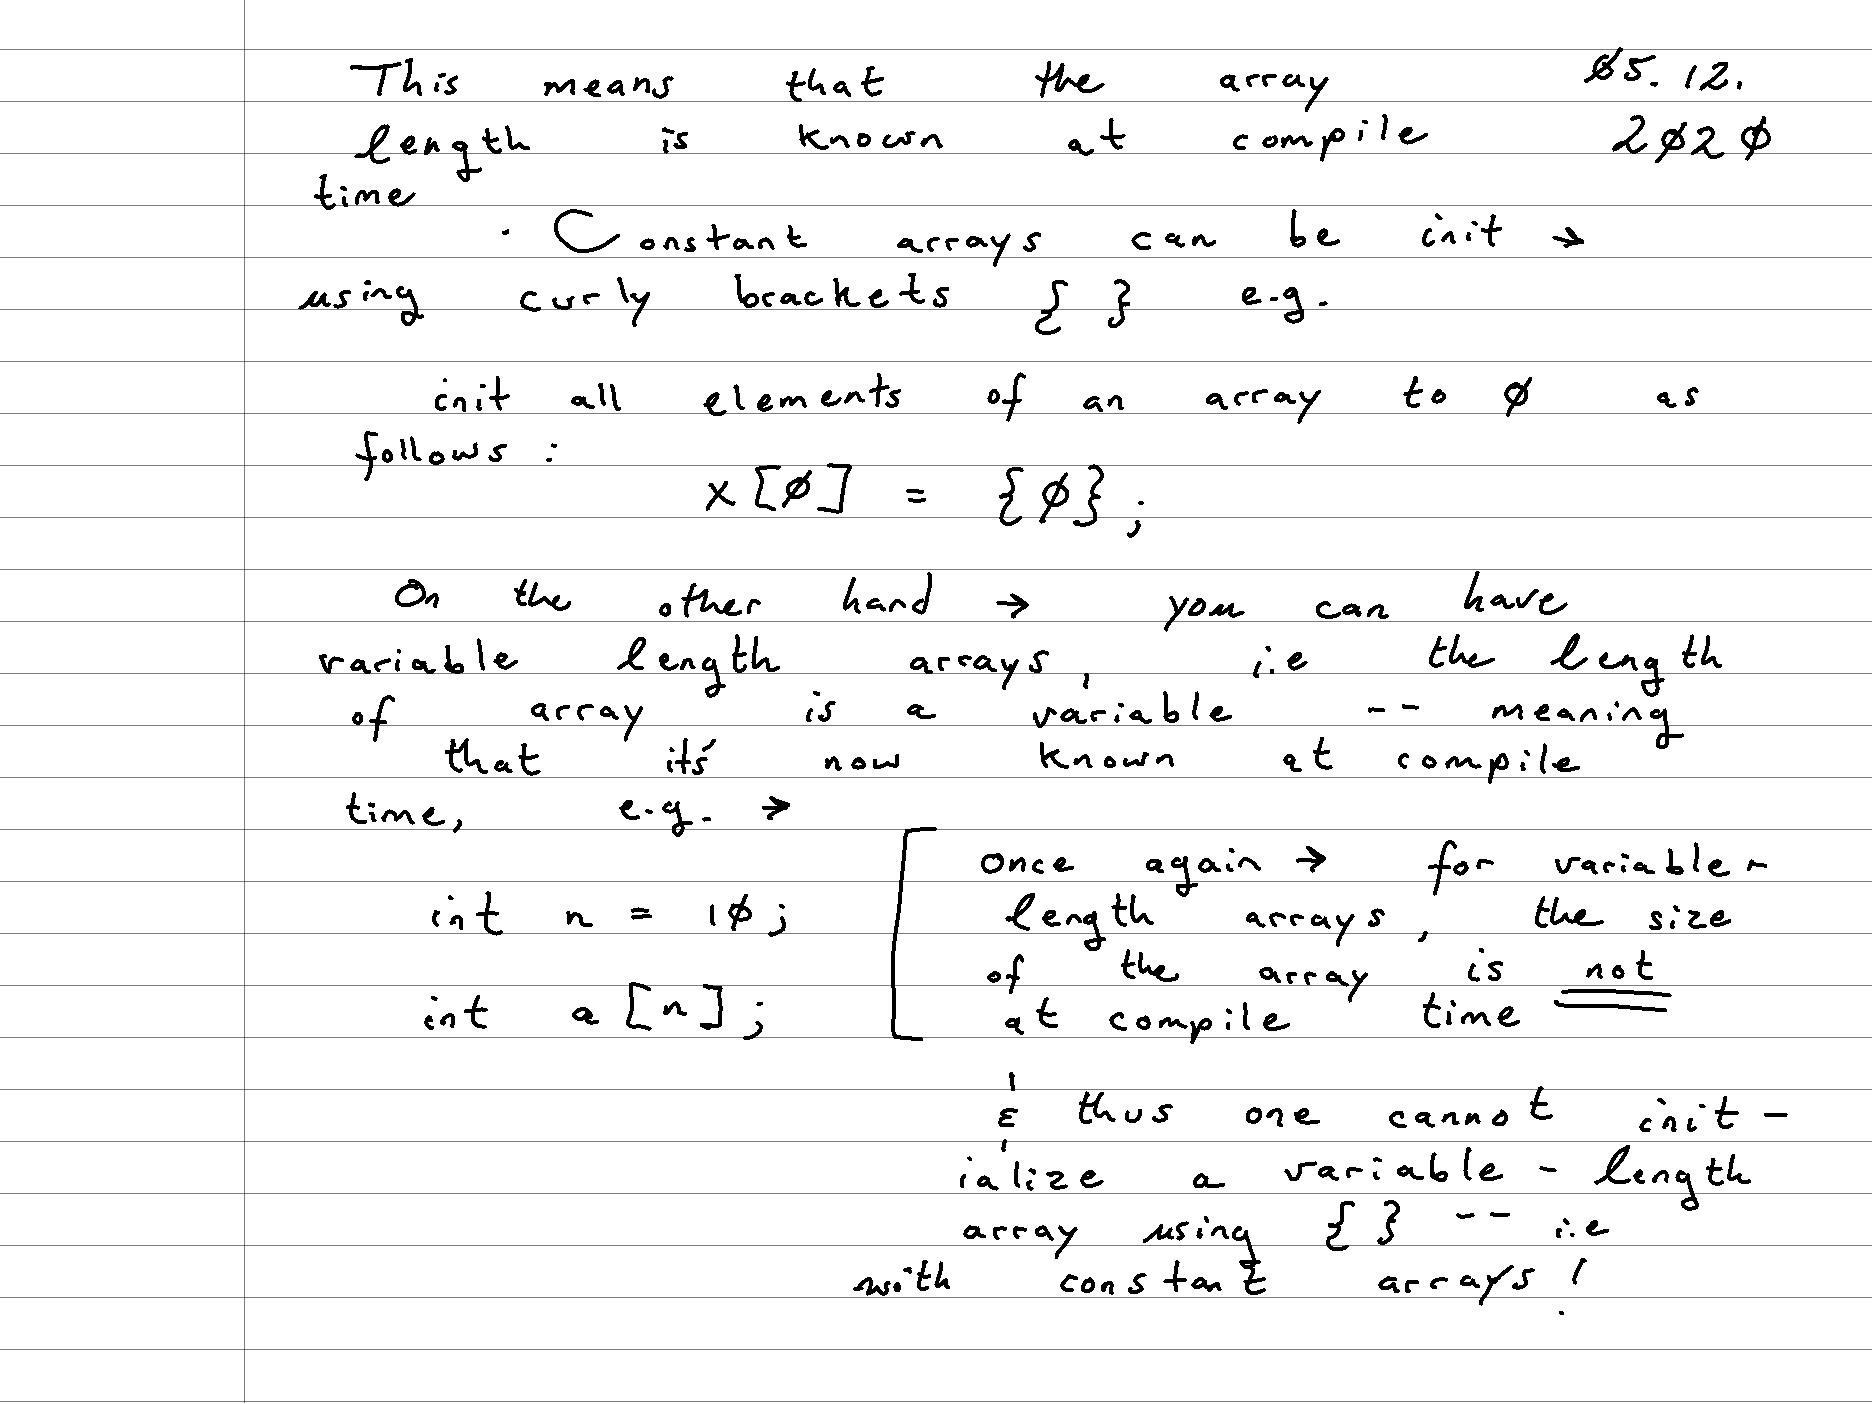 This means that the array Ø5.12.
length is known at compile 2Ø2Ø
time
· Constant arrays can be init →
using curly brackets { } e.g.
init all elements of an array to Ø as
follows:
x[Ø] = {Ø};
On the other hand → you can have
variable length arrays, i.e the length
of array is a variable -- meaning
that it's now known at compile
time, e.g. →
int n = 1Ø;
int a[n];
Once again → for variable-
length arrays, the size
of the array is not
at compile time
& thus one cannot init-
ialize a variable-length
array using { } -- i.e
with constant arrays!